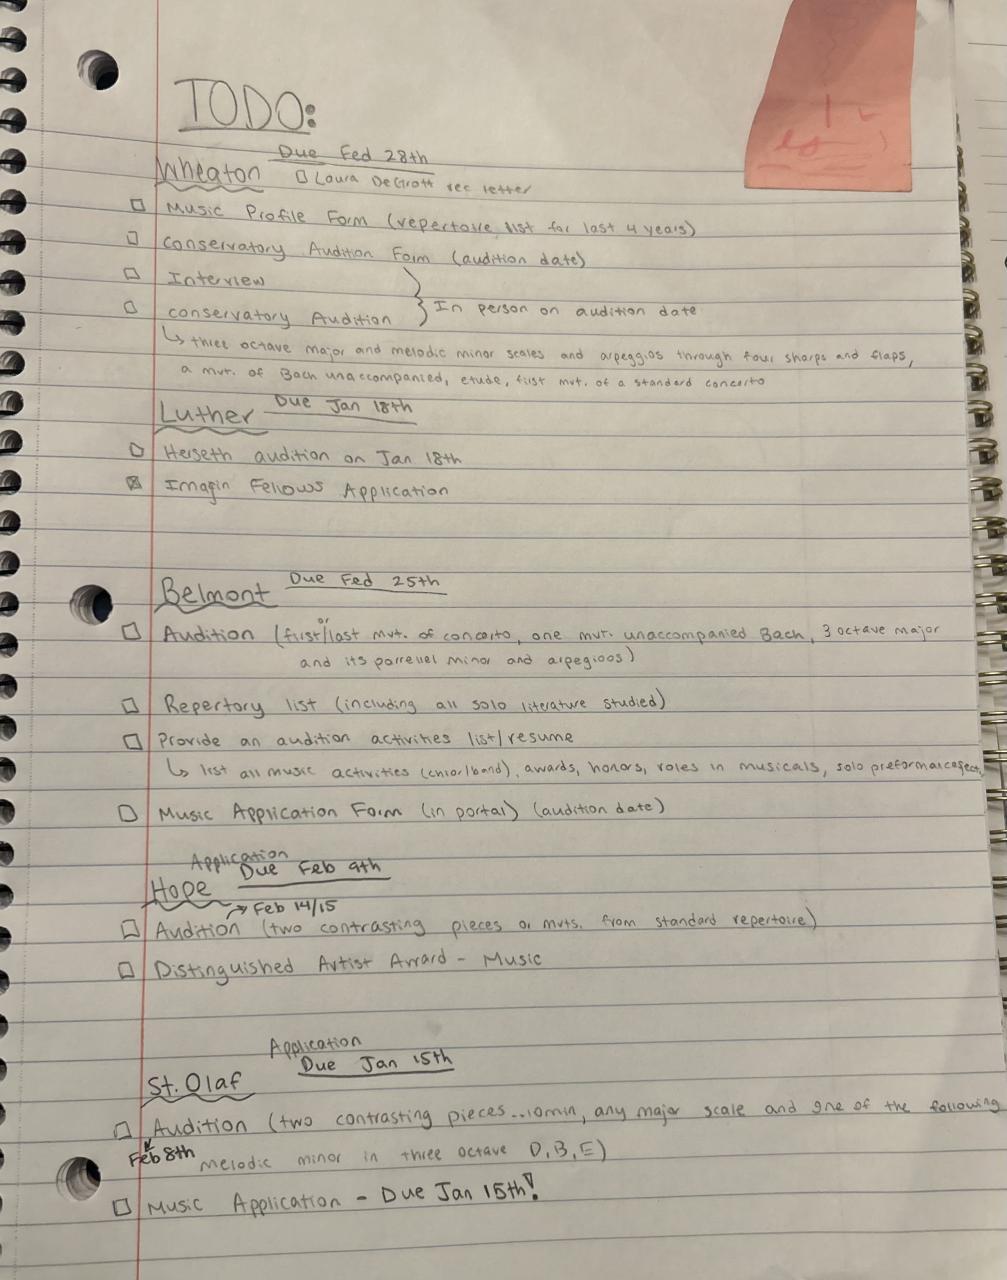 TODO:
Due Fed 28th
Wheaton
□ Laura DeGroft rec letter
□ Music Profile Form (repertoire list for last 4 years)
□ Conservatory Audition Form (audition date)
□ Interview
In person on audition date
□ conservatory Audition
↳ three octave major and melodic minor scales and arpeggios through four sharps and flaps,
a mvt. of Bach unaccompanied, etude, first mvt. of a standard concerto
Luther Due Jan 18th
□ Herseth audition on Jan 18th
☒ Imagin Fellows Application
Belmont Due Fed 25th
□ Audition (first/or last mvt. of concerto, one mvt. unaccompanied Bach, 3 octave major
and its parrellel minor and arpegioos)
□ Repertory list (including all solo literature studied)
□ Provide an audition activities list/resume
↳ list all music activities (chior/band), awards, honors, roles in musicals, solo
□ Music Application Form (in portal) (audition date)
Application
Due Feb 9th
Hope
→ Feb 14/15
□ Audition (two contrasting pieces or mvts. from standard repertoire)
□ Distinguished Artist Award - Music
Application
Due Jan 15th
St. Olaf
□ Audition (two contrasting pieces..10min, any major scale and one of the following
Feb 8th melodic minor in three octave D, B, E)
□ Music Application - Due Jan 15th!